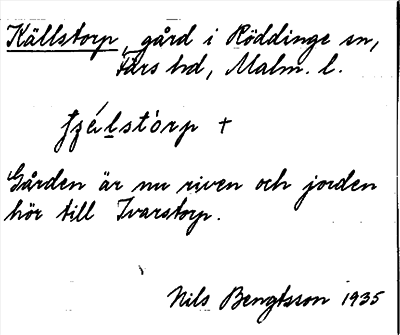 Källstorp gård i Röddinge sn,
Färs hd, Malm. l.
Gården är nu riven och jorden
hör till Ivarstorp.
Nils Bengtsson 1935